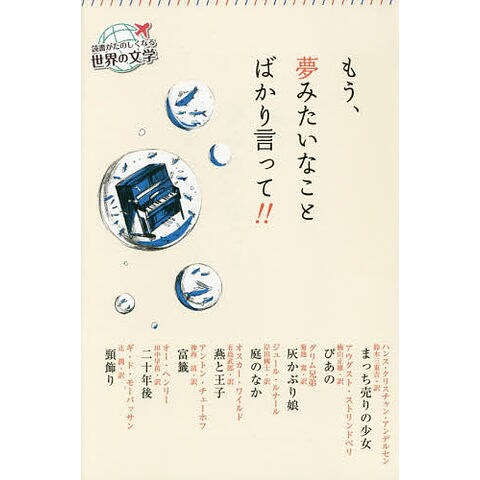 読書がたのしくなる
世界の文学
もう、
夢みたいなこと
ばかり言って!!
ハンス・クリスチャン・アンデルセン
鈴木三重吉・訳
まっち売りの少女
アウグスト・ストリンドベリ
楠山正雄・訳
ぴあの
グリム兄弟
菊池 寛・訳
灰かぶり娘
ジュール・ルナール
岸田國士・訳
庭のなか
オスカー・ワイルド
有島武郎・訳
燕と王子
アントン・チェーホフ
神西 清・訳
富籤
オー・ヘンリー
田中早苗・訳
二十年後
ギ・ド・モーパッサン
辻 潤・訳
頸飾り